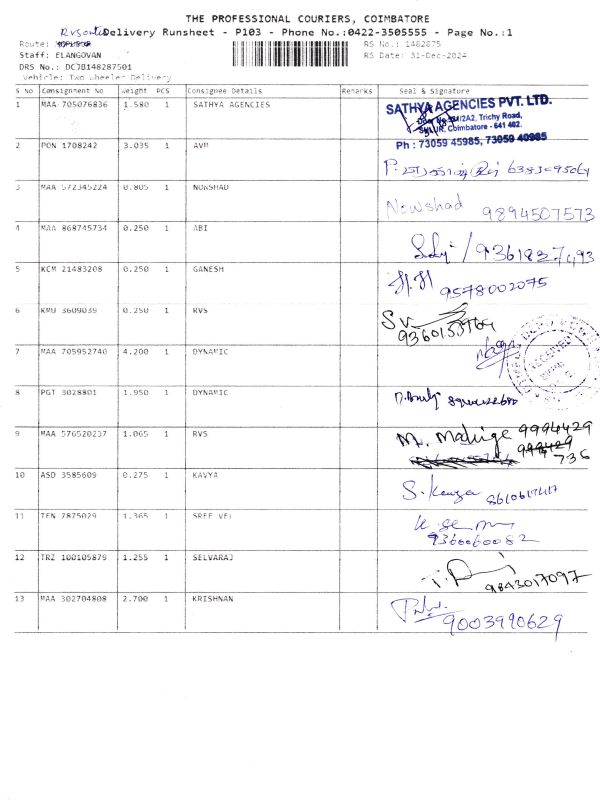 THE PROFESSIONAL COURIERS, COIMBATORE
Delivery Runsheet - P103 - Phone No.:0422-3505555 - Page No.:1
Route:
RS No.: 1482875
Staff: ELANGOVAN
RS Date: 31-Dec-2024
DRS No.: DCJB148287501
Vehicle: Two Wheeler Delivery
S No Consignment No Weight PCS Consignee Details Remarks Seal & Signature
1 MAA 705076836 1.580 1 SATHYA AGENCIES
SATHYA AGENCIES PVT. LTD.
Trichy Road,
SULUR, Coimbatore - 641 402.
Ph : 73059 45985, 73059 40985
2 PON 1708242 3.035 1 AVM
3 MAA 572345224 0.805 1 NOWSHAD
Nowshad 9894507573
4 MAA 868745734 0.250 1 ABI
9361837493
5 KCM 21483208 0.250 1 GANESH
9578002075
6 KMU 3609039 0.250 1 RVS
7 MAA 705952740 4.200 1 DYNAMIC
RECEIVED
8 PGT 3028801 1.950 1 DYNAMIC
9 MAA 576520237 1.065 1 RVS
9994429
736
10 ASD 3585609 0.275 1 KAVYA
11 TEN 7875029 1.365 1 SREE VEL
9360060082
12 TRZ 100105879 1.255 1 SELVARAJ
9843017097
13 MAA 302704808 2.700 1 KRISHNAN
9003990629